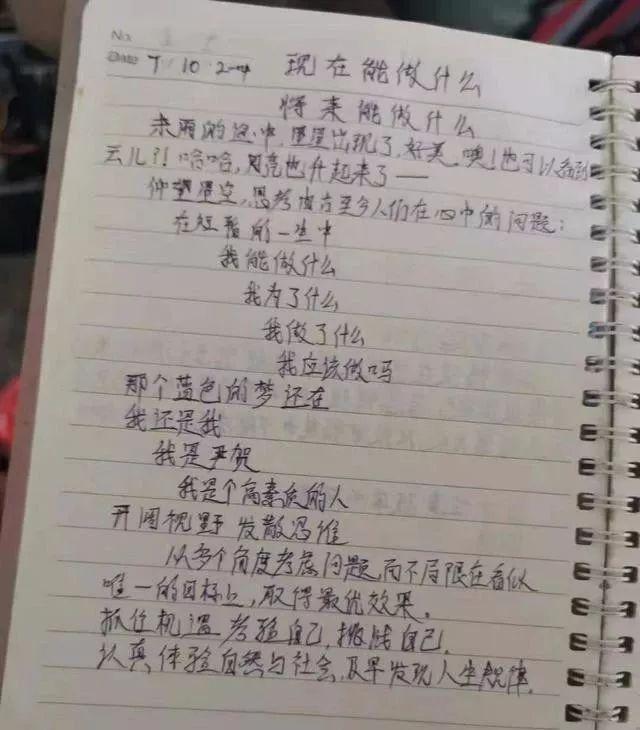 No.
Date 7 10 2004
现在能做什么
将来能做什么
来雨的途中,星星出现了,好美,噢!也可以看到
云儿?!哈哈,月亮也升起来了——
仰望星空,思考彼方至今人们在心中的问题:
在短暂的一生中
我能做什么
我为了什么
我做了什么
我应该做吗
那个蓝色的梦还在
我还是我
我是严贺
我是个高素质的人
开阔视野 发散思维
从多个角度考虑问题,而不局限在看似
唯一的目标上,取得最优效果。
抓住机遇 考验自己,挑战自己。
认真体验自然与社会,及早发现人生规律。